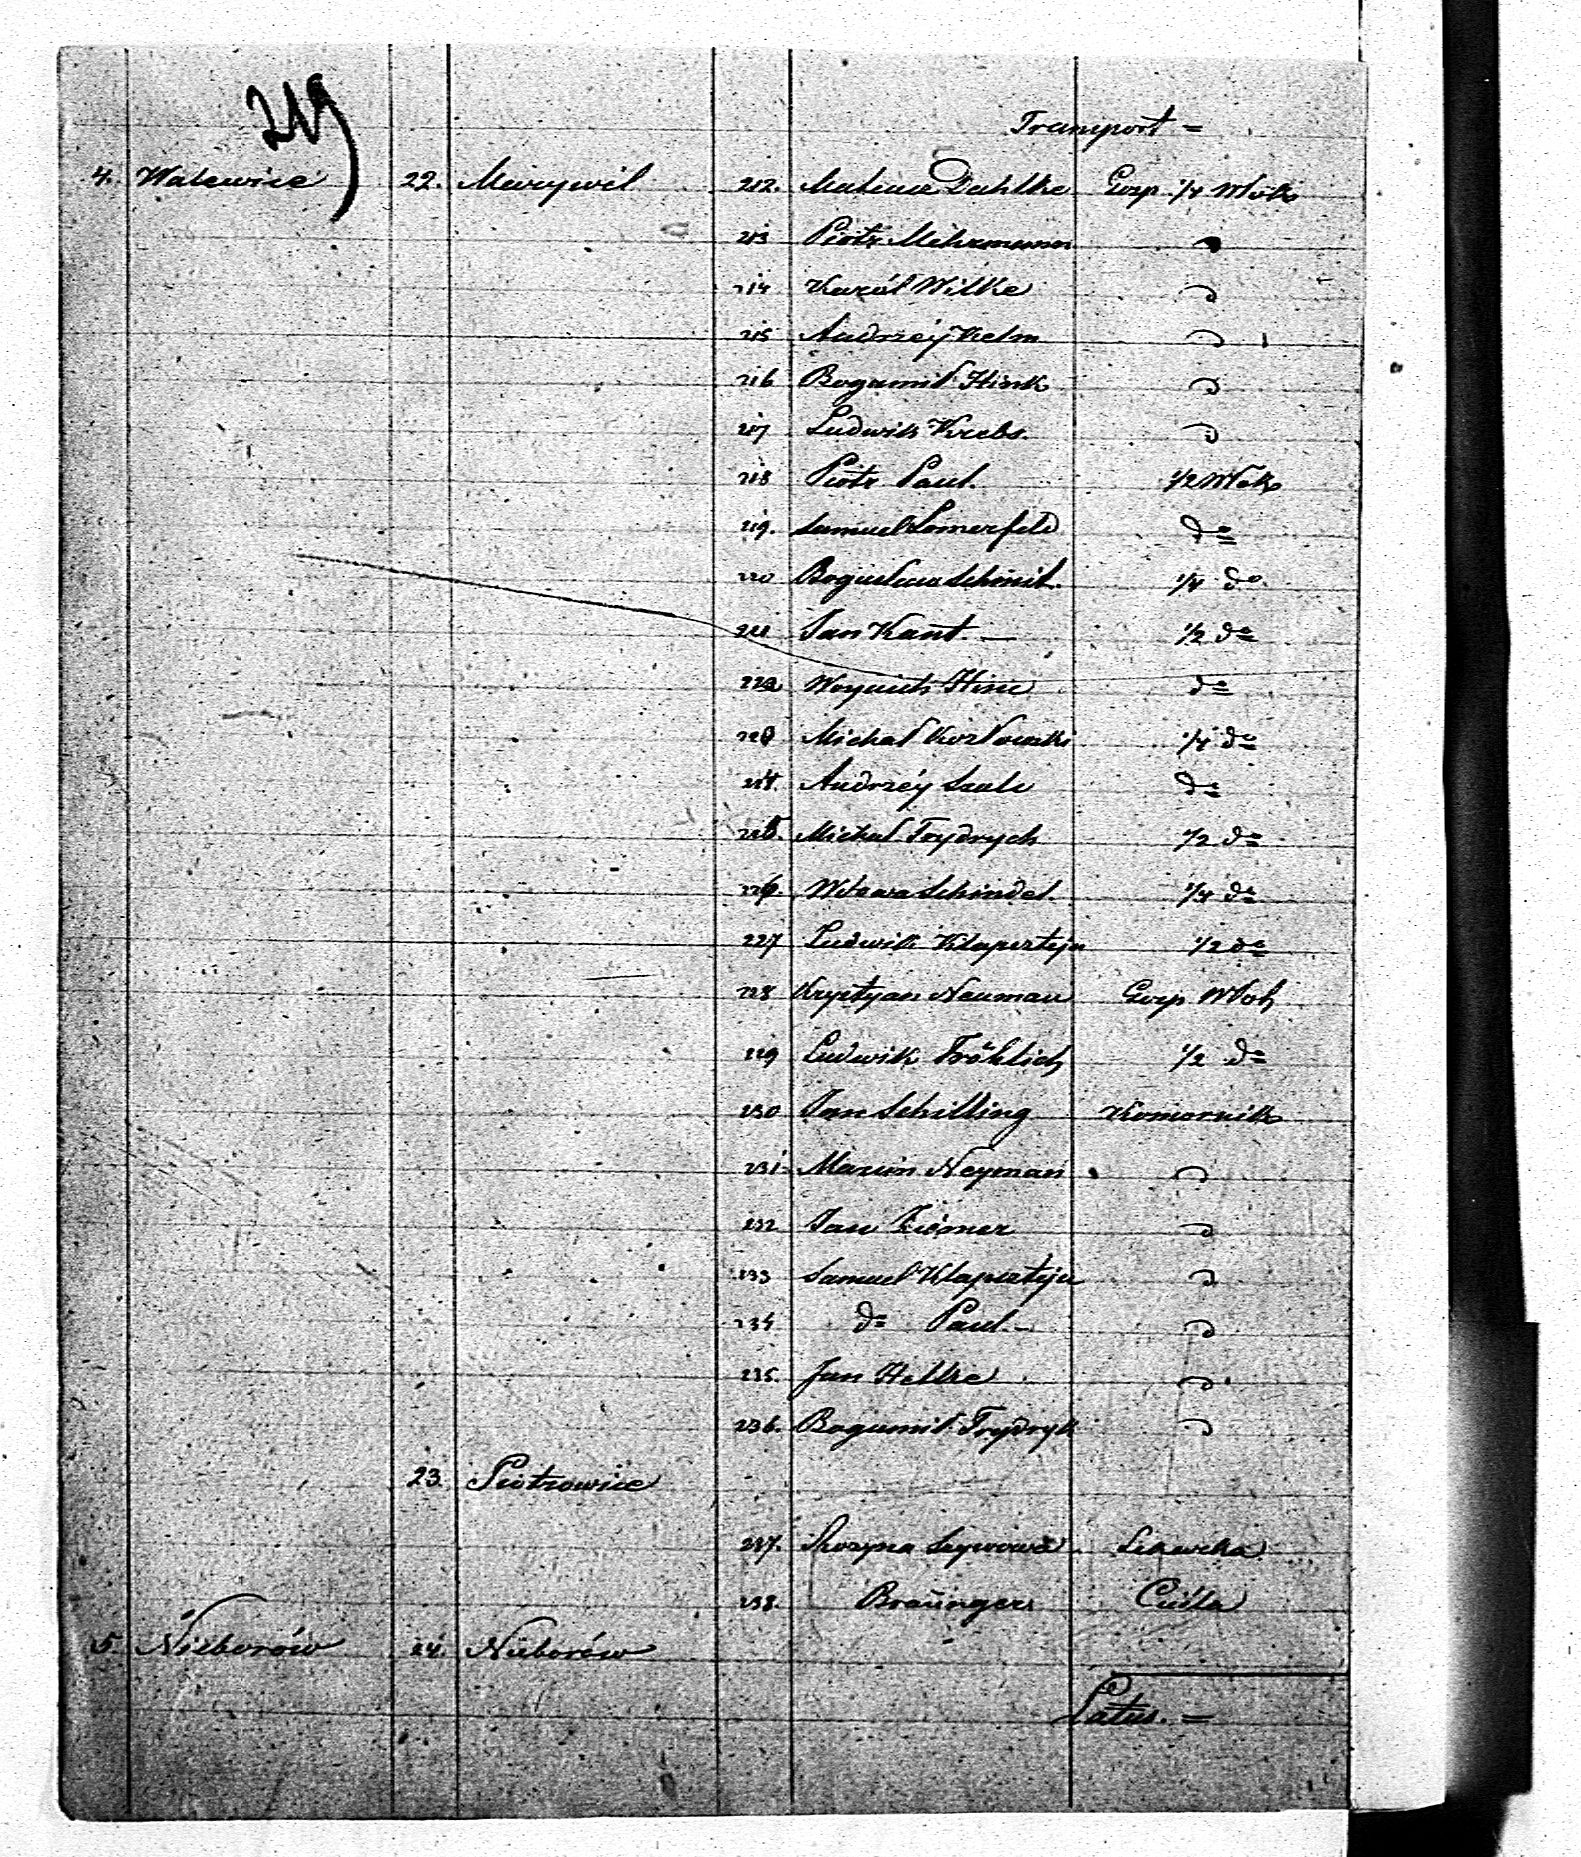 219
Transport =
4. Walewice 22. Marywil 212. Mateusz Dahlke Gosp 1/4 Włok
213 Piotr Mehrmann
214 Karól Wilke
215 Andrzéy Kelm
216 Bogumił Hink
217 Ludwik Krebs.
218 Piotr Paul. 1/2 Włok
219. Samuel Somerfeld do
220 Bogusław Schmit. 1/4 do
221 Jan Kant. — 1/2 do
222 Woyciech do
223 Michał Kozłowski 1/4 do
224. Andrzéy do
225. Michał Frydrych 1/2 do
226 Schindel. 1/4 do
227 Ludwik Klapsztejn 1/2 do
228 Krystyan Neuman Gosp Włok
229 Ludwik Fröhlich 1/2 do
230 Jan Schilling Komornik
231 Marcin Neyman
232 Jan
233 Samuel Klapsztejn
234 do Paul. —
235. Jan Helke
236. Bogumił Frydryk
23. Piotrowice
237. Rozyna
238. Braünger
5. Nieborów 24. Nieborów
Latus. =